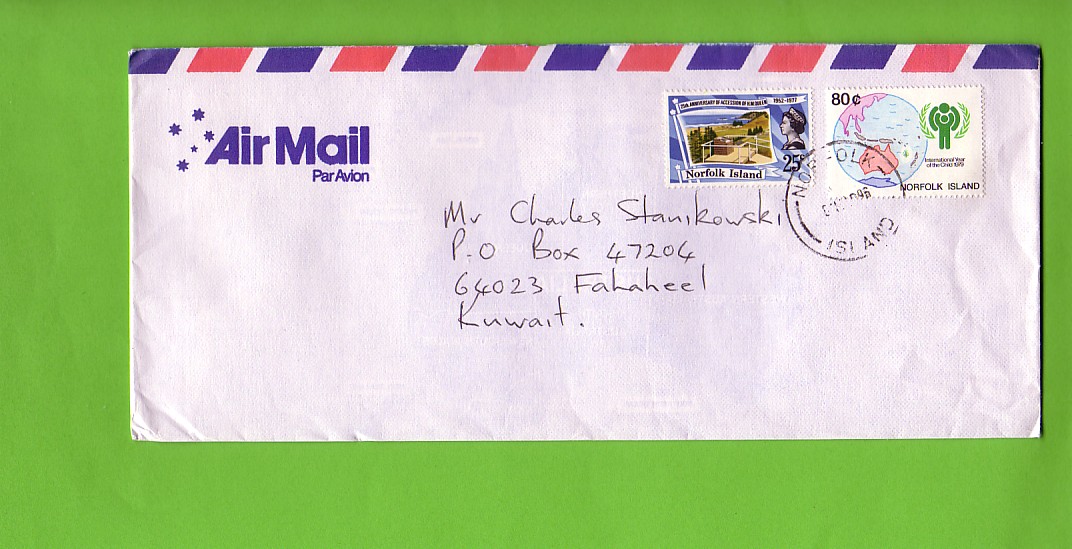 Air Mail
Par Avion
25th ANNIVERSARY OF ACCESSION OF H.M. QUEEN 1952-1977
25c
Norfolk Island
80c
International Year
of the Child 1979
NORFOLK ISLAND
NORFOLK
ISLAND
Mr Charles Stanikowski
P.O Box 47204
64023 Fahaheel
Kuwait.